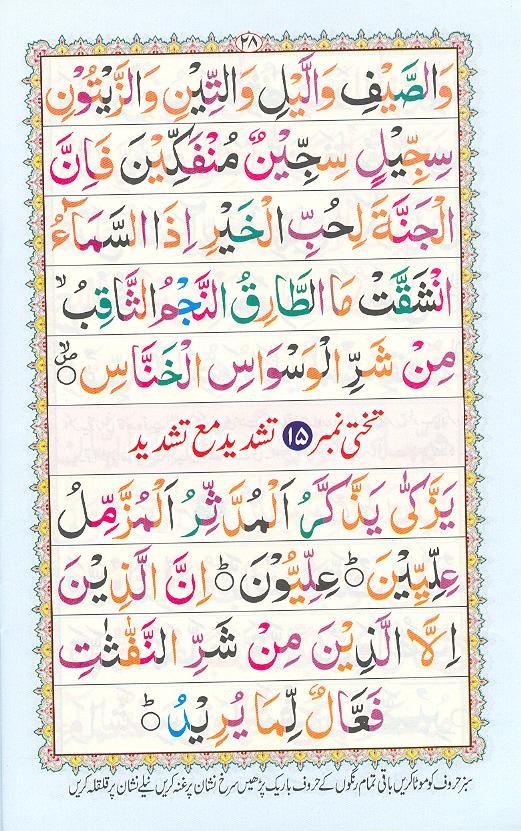 ٢٨
وَالصَّيْفِ وَالَّيْلِ وَالتِّيْنِ وَالزَّيْتُوْنِ
سِجِّيْلٍ سِجِّيْنٌ مُنْفَكِّيْنَ فَاِنَّ
الْجَنَّةَ لِحُبِّ الْخَيْرِ اِذَا السَّمَآءُ
انْشَقَّتْ مَا الطَّارِقُ النَّجْمُ الثَّاقِبُ ۙ
مِنْ شَرِّ الْوَسْوَاسِ الْخَنَّاسِ
تختی نمبر ۱۵ تشدید مع تشدید
يَزَّكّٰى يَذَّكَّرُ اَلْمُدَّثِّرُ اَلْمُزَّمِّلُ
عِلِّيِّيْنَ ؕ عِلِّيُّوْنَ ؕ اِنَّ الَّذِيْنَ
اِلَّا الَّذِيْنَ مِنْ شَرِّ النَّفّٰثٰتِ
فَعَّالٌ لِّمَا يُرِيْدُ ؕ
سبز حروف کو موٹا کریں باقی تمام رنگوں کے حروف باریک پڑھیں سرخ نشان پر غنہ کریں نیلے نشان پر قلقلہ کریں